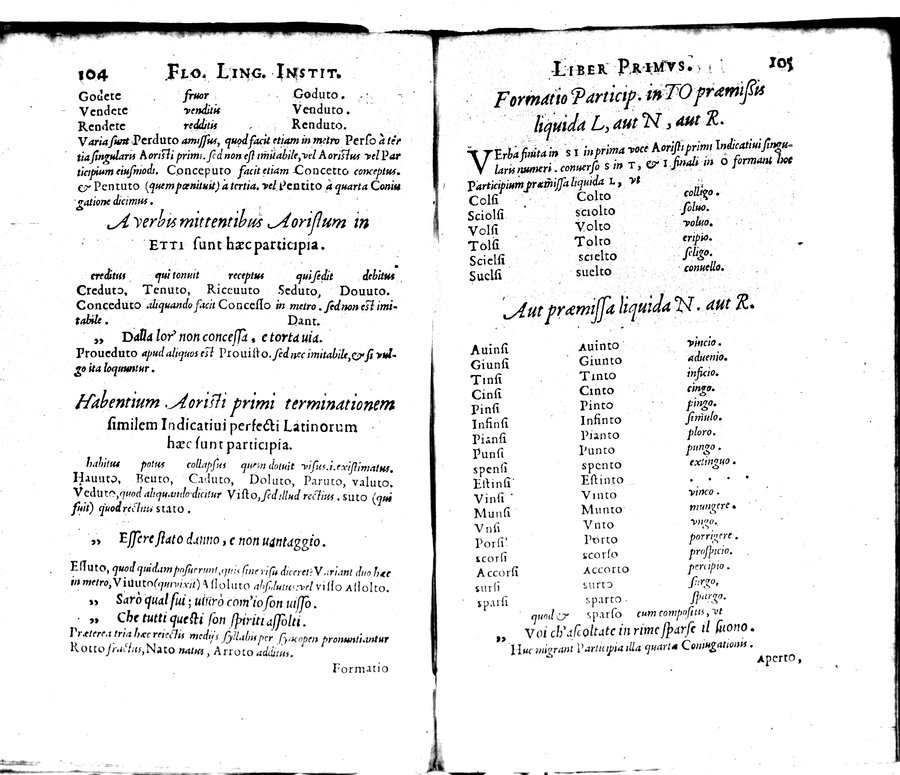 104 FLO. LING. INSTIT.
Godete fruor Goduto.
Vendete venditis Venduto.
Rendete redditis Renduto.
Varia sunt Perduto amissus, quod facit etiam in metro Perso à ter
tia singularis Aoristi primi. sed non est imitabile, vel Aoristus vel Par
ticipium eiusmodi. Conceputo facit etiam Concetto conceptus.
& Pentuto (quem pœnituit) à tertia. vel Pentito à quarta Coniu
gatione dicimus.
A verbis mittentibus Aoristum in
ETTI sunt hæc participia.
creditus qui tonuit receptus qui sedit debitus
Creduto, Tenuto, Riceuuto Seduto, Douuto.
Conceduto aliquando facit Concesso in metro. sed non est imi-
tabile. Dant.
„ Dalla lor' non concessa, e torta uia.
Proueduto apud aliquos est Prouisto. sed nec imitabile, & si vul-
go ita loquuntur.
Habentium Aoristi primi terminationem
similem Indicatiui perfecti Latinorum
hæc sunt participia.
habitus potus collapsus quem dotuit visus.i.existimatus.
Hauuto, Beuto, Caduto, Doluto, Paruto, valuto.
Veduto, quod aliquando dicitur Visto, sed illud rectius. suto (qui
fuit) quod rectius stato.
„ Essere stato danno, e non uantaggio.
Essuto, quod quidam posuerunt, quis sine risu diceret? Variant duo hæc
in metro, Viuuto (qui vixit) Assoluto absolutus: vel visso Assolto.
„ Sarò qual fui; uiurò com'io son uisso.
„ Che tutti questi son spiriti assolti.
Præterea tria hæc reiectis medijs syllabis per syncopen pronuntiantur
Rotto fractus, Nato natus, Arroto additus.
Formatio
LIBER PRIMVS. 105
Formatio Particip. in TO præmissis
liquida L, aut N, aut R.
VErba finita in SI in prima voce Aoristi primi Indicatiui singu-
laris numeri. conuerso S in T, & I finali in O formant hoc
Participium præmissa liquida L, vt
Colsi Colto colligo.
Sciolsi sciolto soluo.
Volsi Volto voluo.
Tolsi Tolto eripio.
Scielsi scielto seligo.
Suelsi suelto conuello.
Aut præmissa liquida N. aut R.
Auinsi Auinto vincio.
Giunsi Giunto aduenio.
Tinsi Tinto inficio.
Cinsi Cinto cingo.
Pinsi Pinto pingo.
Infinsi Infinto simulo.
Piansi Pianto ploro.
Punsi Punto pungo.
spensi spento extinguo.
Estinsi Estinto . . . .
Vinsi Vinto vinco.
Munsi Munto mungere.
Vnsi Vnto vngo.
Porsi Porto porrigere.
scorsi scorto prospicio.
Accorsi Accorto percipio.
sursi surto surgo.
sparsi sparto spargo.
quod & sparso cum compositis, vt
„ Voi ch'ascoltate in rime sparse il suono.
Huc migrant Participia illa quartæ Coniugationis.
Aperto,